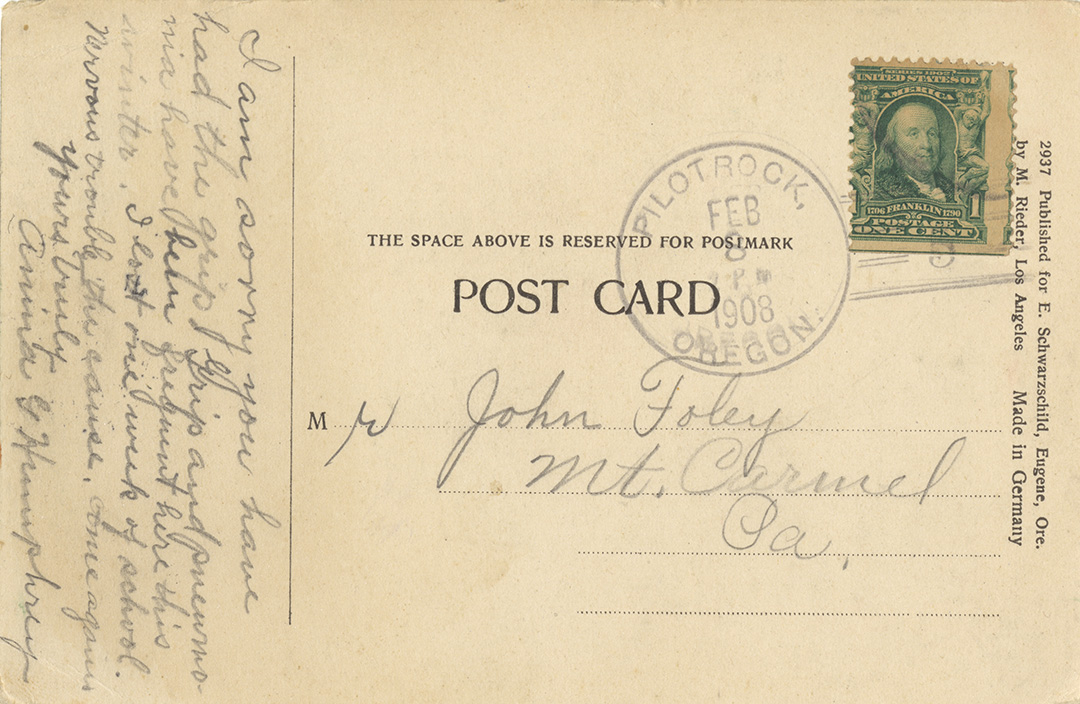 I am sorry you have
had the grip. Grip and pneumo-
nia have been frequnt here this
winter. I lost one week of school.
Nervous trouble the cause. Come again
Yours truly
Anna G Humphrey
SERIES 1902
UNITED STATES OF
AMERICA
1706 FRANKLIN 1790
POSTAGE
1
ONE CENT
PILOT ROCK,
FEB
8
P M
1908
OREGON.
THE SPACE ABOVE IS RESERVED FOR POSTMARK
POST CARD
Mr John Foley
Mt. Carmel
Pa,
2937 Published for E. Schwarzschild, Eugene, Ore.
by M. Rieder, Los Angeles Made in Germany